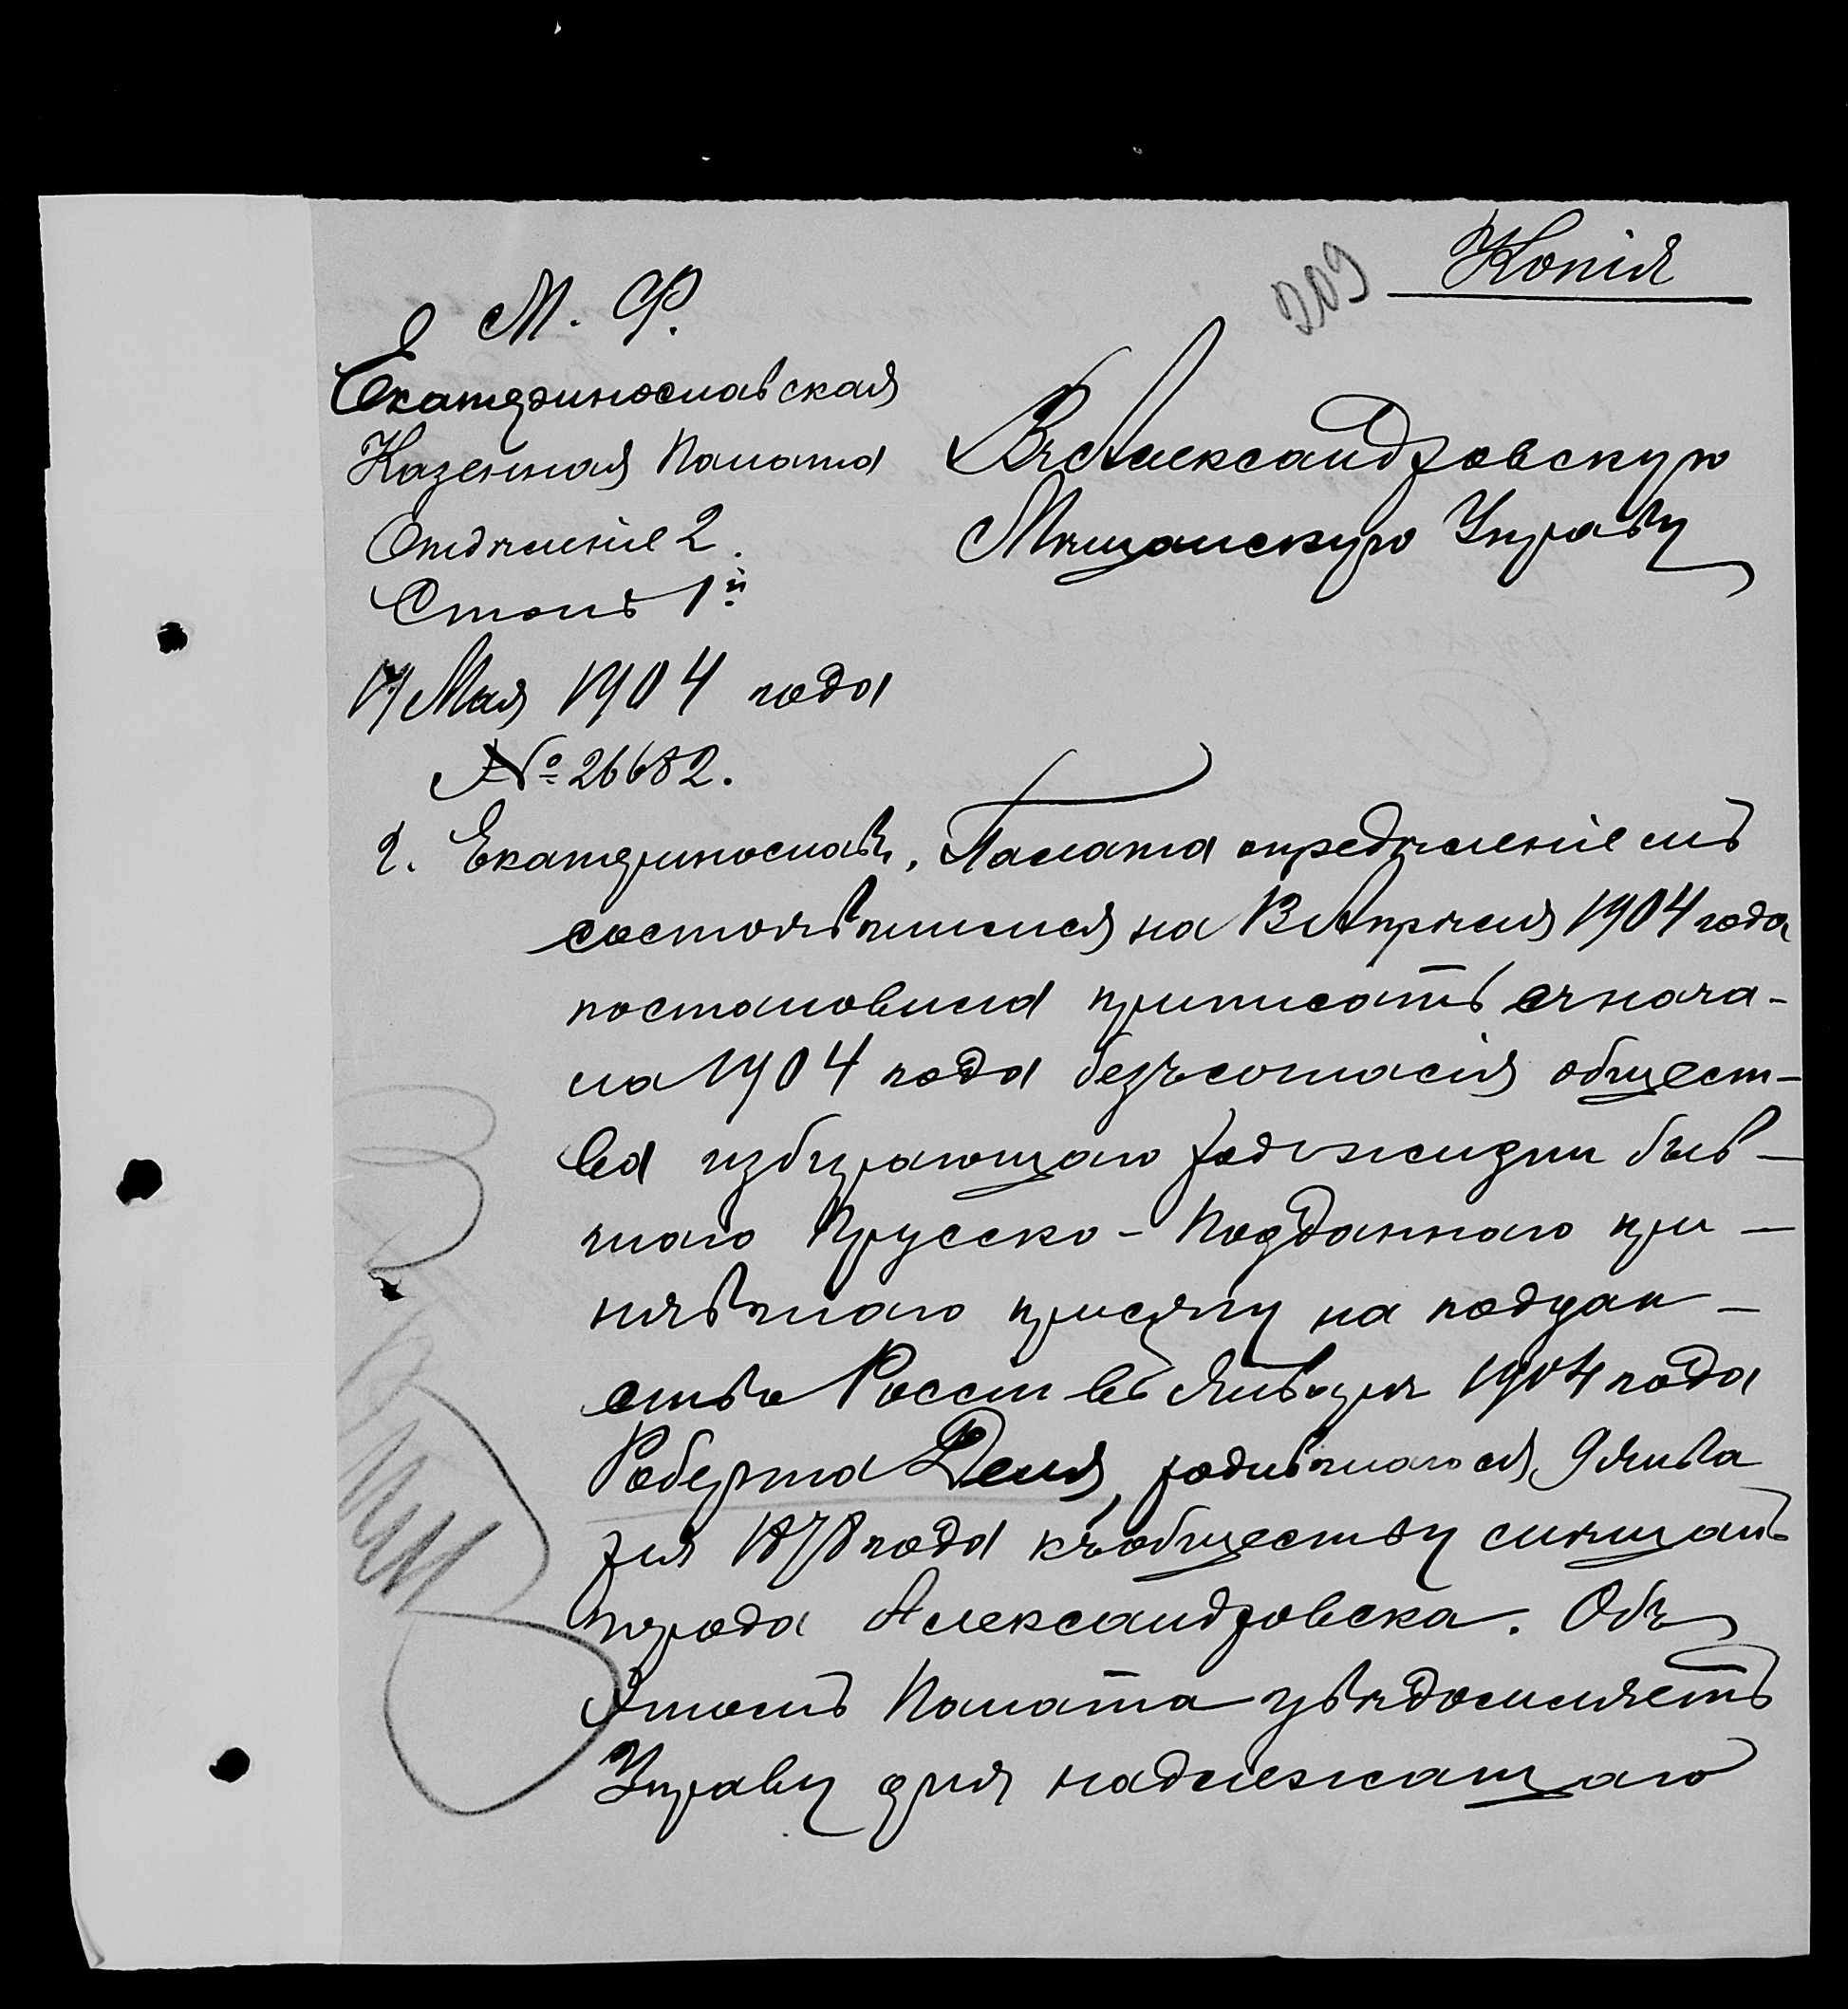 Копія
209
М. Ф.
Екатеринославская
Казенная Палата
Отдѣленіе 2.
Столъ 1й
17 Мая 1904 года
№ 26682.
г. Екатеринославъ.
Въ Александровскую
Мѣщанскую Управу
Палата опредѣленіемъ
состоявшимся на 13 Апрѣля 1904 года
постановила приписать съ нача-
ла 1904 года безъ согласія общест-
ва избирающаго родъ жизни быв-
шаго Прусско-Подданнаго при-
нявшаго присягу на поддан-
ство Россіи въ Январѣ 1904 года
Роберта Деля, родившагося 9 Янва
ря 1878 года къ обществу мѣщанъ
города Александровска. Объ
этомъ Палата увѣдомляетъ
Управу для надлежащаго